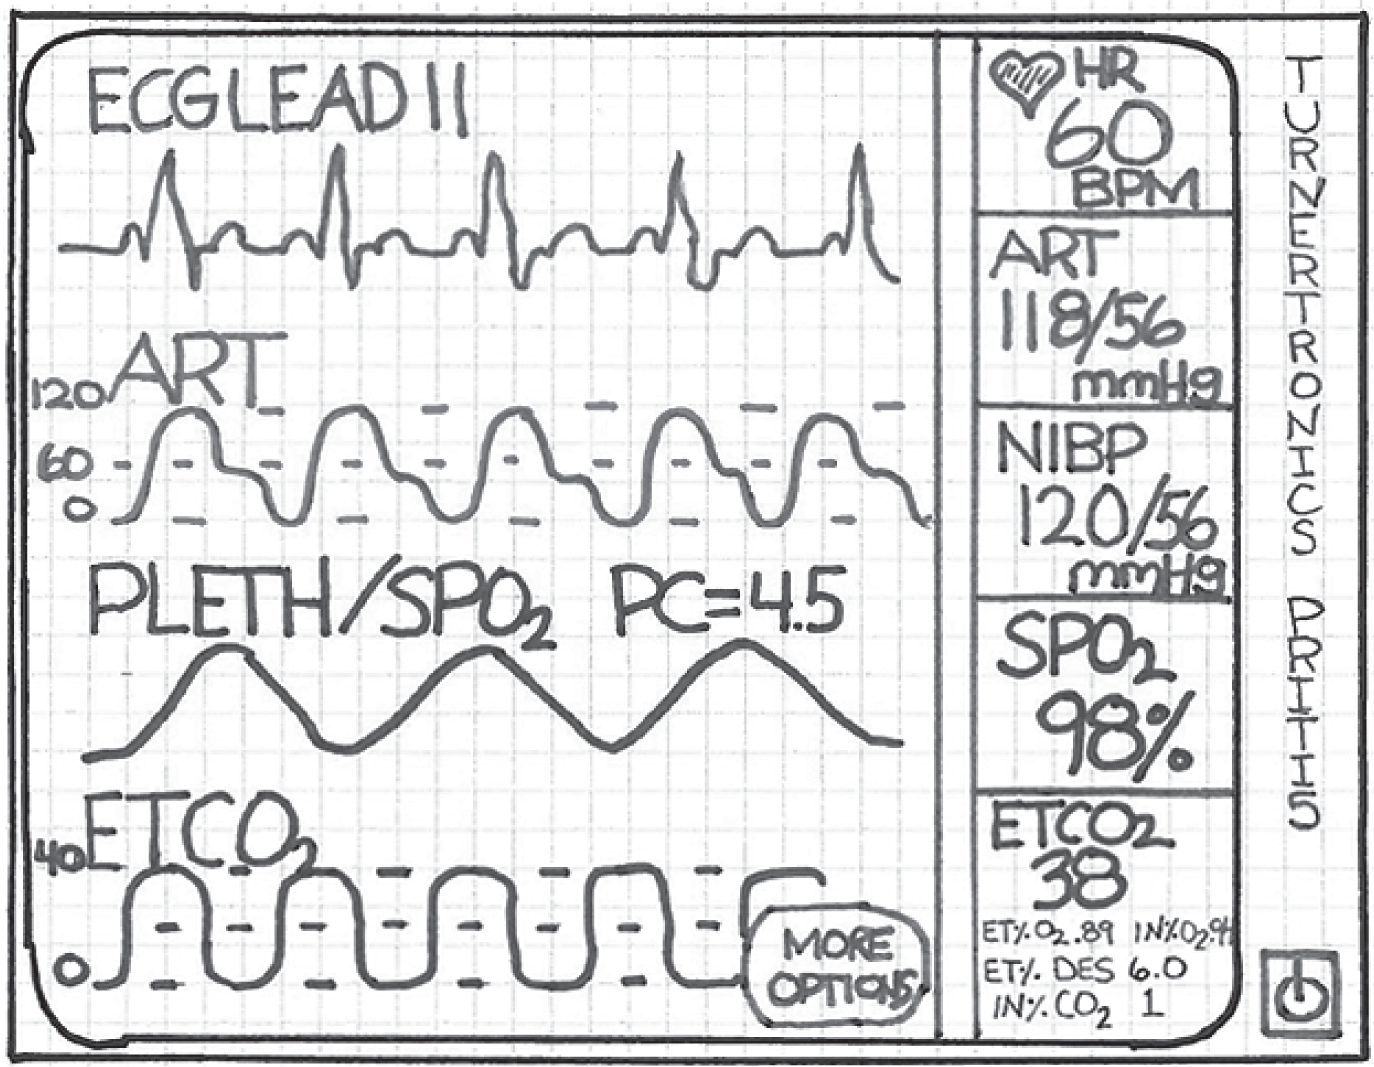 ECG LEAD II
ART
120
60
0
PLETH/SPO₂ PC=4.5
ETCO₂
40
0
MORE
OPTIONS
HR
60
BPM
ART
118/56
mmHg
NIBP
120/56
mmHg
SPO₂
98%
ETCO₂
38
ET% O₂ .89 IN% O₂
ET% DES 6.0
IN% CO₂ 1
TURNERTRONICS PRITI5